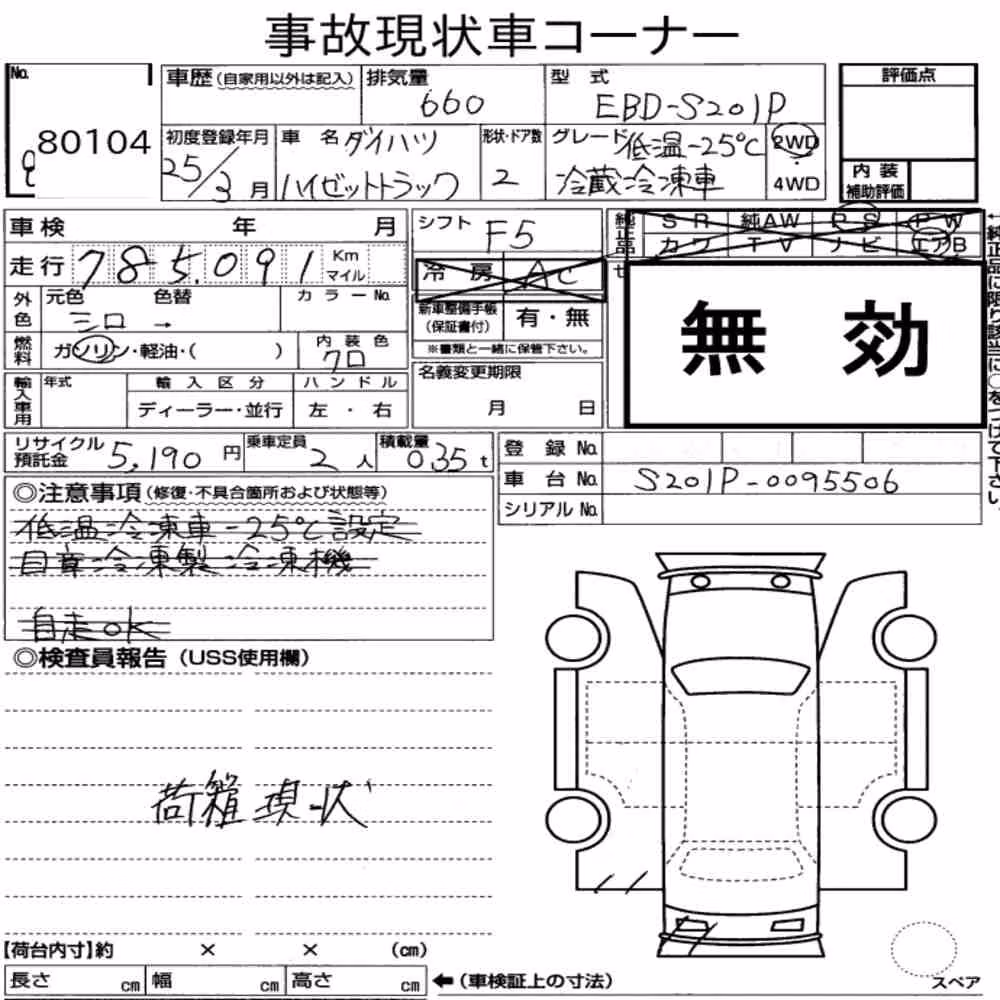 事故現状車コーナー
No. 80104
車歴(自家用以外は記入)
排気量 660
型式 EBD-S201P
評価点
初度登録年月 25/3月
車名 ダイハツ ハイゼットトラック
形状・ドア数 2
グレード 低温-25℃ 冷蔵冷凍車
2WD・4WD
内装補助評価
車検 年 月
シフト F5
純正品
SR 純AW PS PW
カワ TV ナビ エアB
走行 785,091 Km マイル
冷房 AC
外色 元色 シロ 色替 → カラーNo.
新車整備手帳(保証書付) 有・無
※書類と一緒に保管下さい。
無効
燃料 ガソリン・軽油・( )
内装色 クロ
名義変更期限 月 日
輸入車用 年式 輸入区分 ハンドル
ディーラー・並行 左・右
リサイクル預託金 5,190円
乗車定員 2人
積載量 035t
登録No.
車台No. S201P-0095506
シリアルNo.
◎注意事項(修復・不具合箇所および状態等)
低温冷凍車-25℃設定
自走OK
◎検査員報告(USS使用欄)
荷箱現状
【荷台内寸】約 × × (cm)
長さ cm 幅 cm 高さ cm
←(車検証上の寸法)
スペア